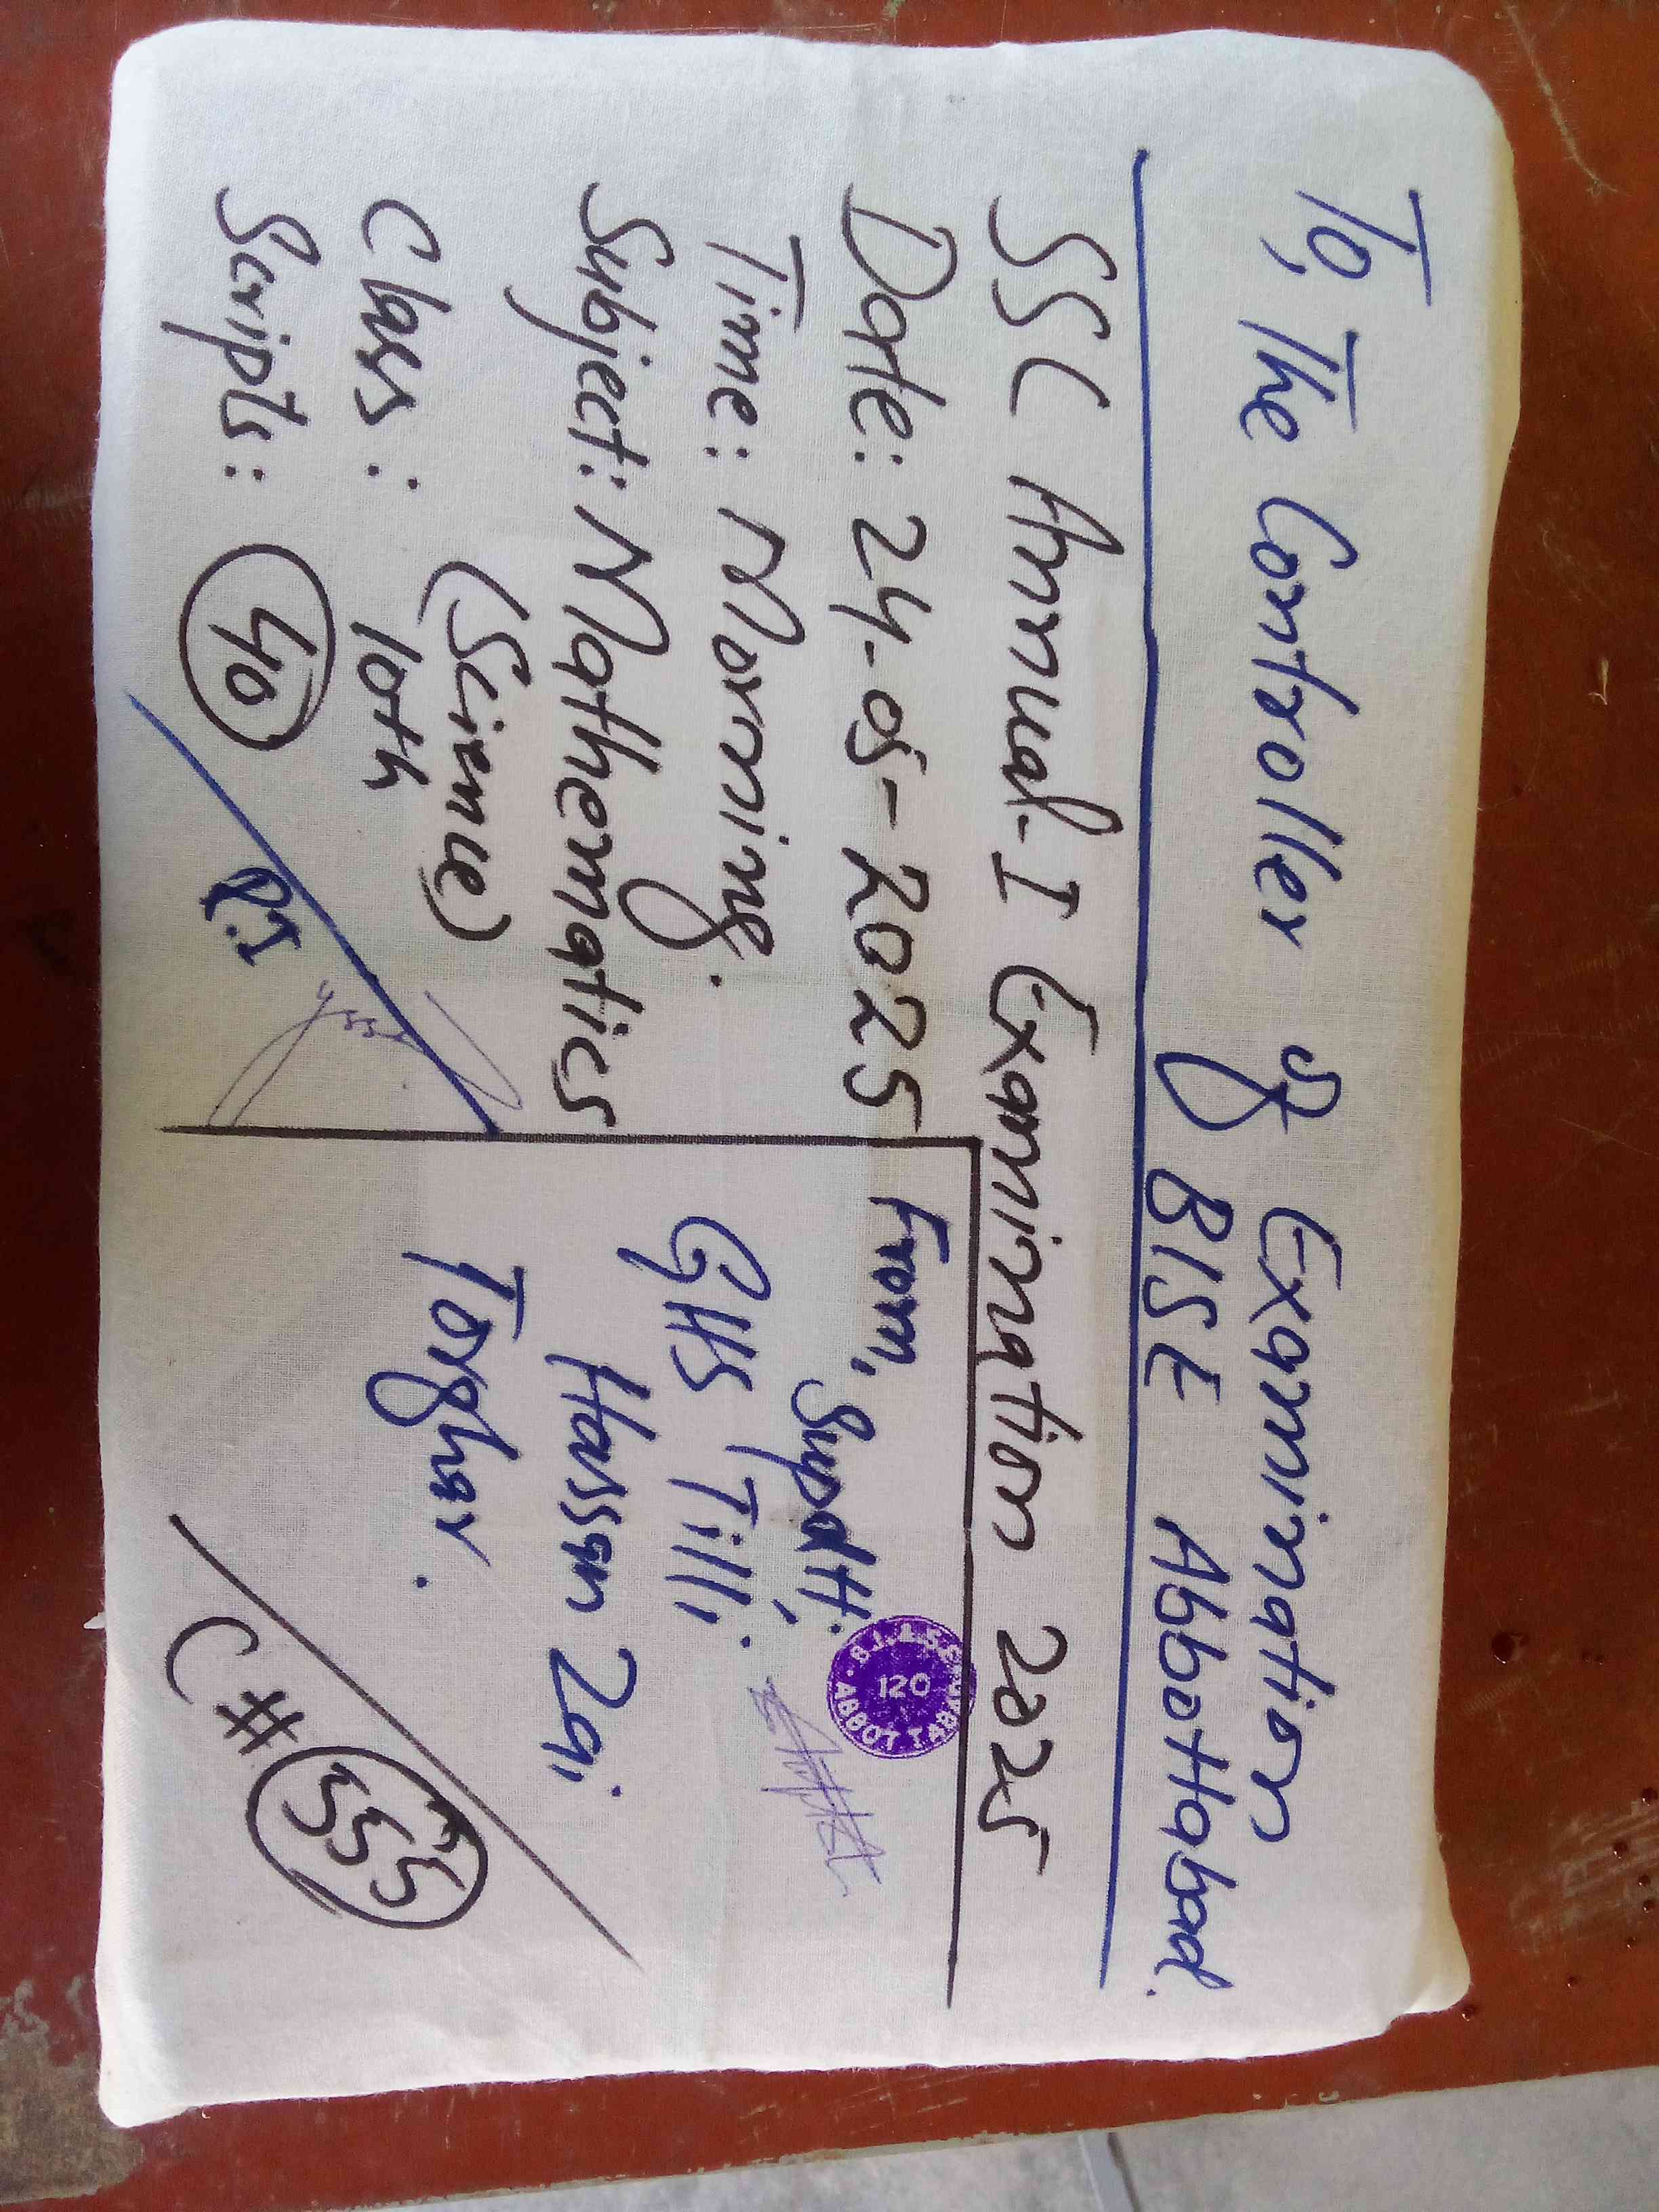 To, The Controller of Examination
BISE Abbottabad.
SSC Annual-I Examination 2025
Date: 24-05-2025
Time: Morning.
Subject: Mathematics
(Science)
Class: 10th
Scripts: 40
From, Supdtt;
GHS Tilli.
Hassan Zai
Torghar.
B.I.&S.E.
120
ABBOTTABAD
C# 555